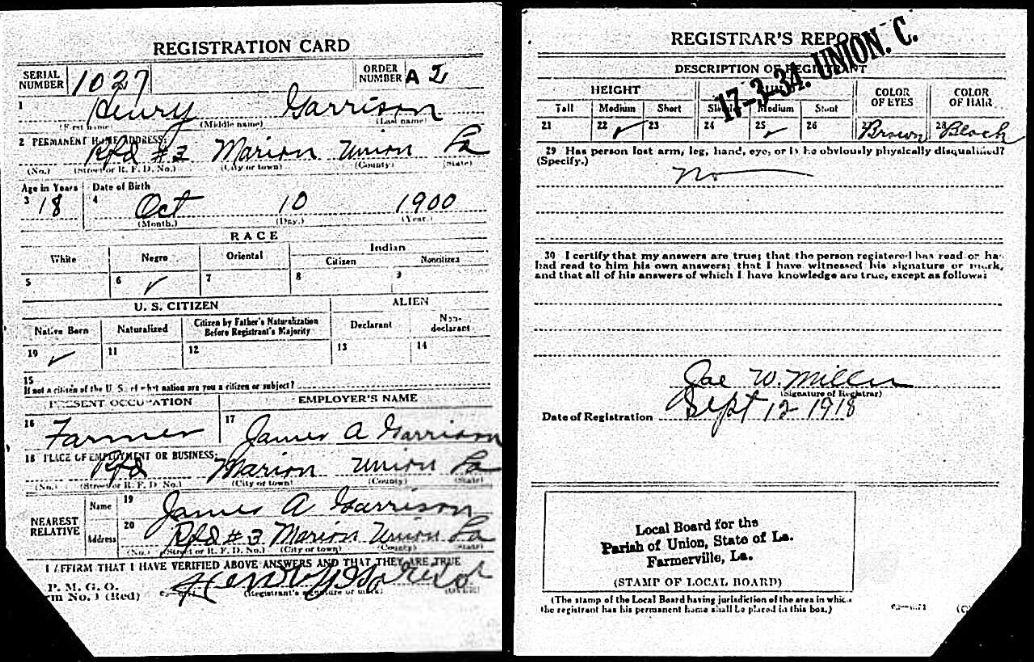 REGISTRATION CARD
SERIAL NUMBER 1027 ORDER NUMBER A 2
1 Henry Garrison
(First name) (Middle name) (Last name)
2 PERMANENT HOME ADDRESS:
Rfd #3 Marion Union La
(No.) (Street or R. F. D. No.) (City or town) (County) (State)
Age in Years Date of Birth
3 18 4 Oct 10 1900
(Month.) (Day.) (Year.)
RACE
White Negro Oriental Indian
Citizen Noncitizen
5 6 ✓ 7 8 9
U. S. CITIZEN ALIEN
Native Born Naturalized Citizen by Father's Naturalization Before Registrant's Majority Declarant Non-declarant
10 ✓ 11 12 13 14
15
If not a citizen of the U. S., of what nation are you a citizen or subject?
PRESENT OCCUPATION EMPLOYER'S NAME
16 Farmer 17 James A Garrison
18 PLACE OF EMPLOYMENT OR BUSINESS:
Rfd Marion Union La
(No.) (Street or R. F. D. No.) (City or town) (County) (State)
NEAREST RELATIVE Name 19 James A. Garrison
Address 20 Rfd # 3 Marion Union La
(No.) (Street or R. F. D. No.) (City or town) (County) (State)
I AFFIRM THAT I HAVE VERIFIED ABOVE ANSWERS AND THAT THEY ARE TRUE
P. M. G. O.
rm No. 1 (Red) Henry
(Registrant's signature or mark) (OVER)
REGISTRAR'S REPORT
17-3-34. UNION. C.
DESCRIPTION OF REGISTRANT
HEIGHT COLOR OF EYES COLOR OF HAIR
Tall Medium Short Slender Medium Stout
21 22 ✓ 23 24 25 ✓ 26 Brown 28 Black
29 Has person lost arm, leg, hand, eye, or is he obviously physically disqualified?
(Specify.)
No
30 I certify that my answers are true; that the person registered has read or ha
had read to him his own answers; that I have witnessed his signature or mark,
and that all of his answers of which I have knowledge are true, except as follows:
Joe W. Miller
(Signature of Registrar)
Date of Registration Sept 12 1918
Local Board for the
Parish of Union, State of La.
Farmerville, La.
(STAMP OF LOCAL BOARD)
(The stamp of the Local Board having jurisdiction of the area in which
the registrant has his permanent home shall be placed in this box.)